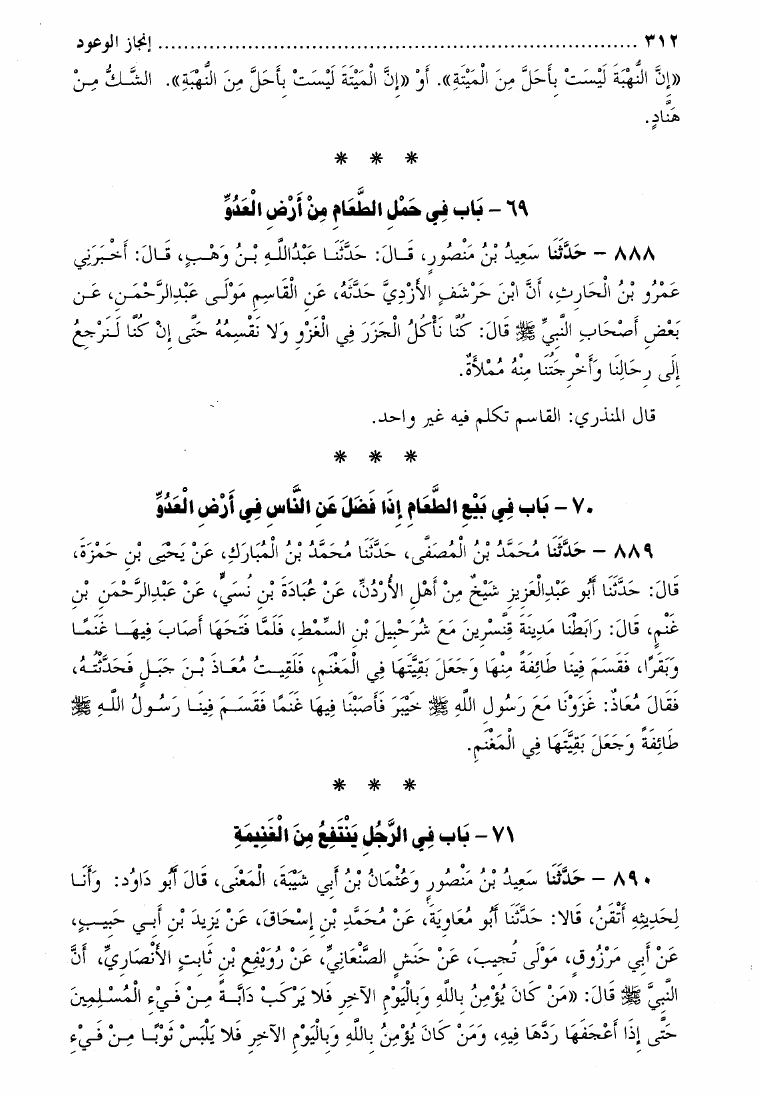 ٣١٢ ........................................................................ إنجاز الوعود
«إِنَّ النُّهْبَةَ لَيْسَتْ بِأَحَلَّ مِنَ الْمَيْتَةِ». أَوْ «إِنَّ الْمَيْتَةَ لَيْسَتْ بِأَحَلَّ مِنَ النُّهْبَةِ». الشَّكُّ مِنْ
هَنَّادٍ.
* * *
٦٩ - بَاب فِي حَمْلِ الطَّعَامِ مِنْ أَرْضِ الْعَدُوِّ
٨٨٨ - حَدَّثَنَا سَعِيدُ بْنُ مَنْصُورٍ، قَالَ: حَدَّثَنَا عَبْدُاللَّهِ بْنُ وَهْبٍ، قَالَ: أَخْبَرَنِي
عَمْرُو بْنُ الْحَارِثِ، أَنَّ ابْنَ حَرْشَفٍ الأَزْدِيَّ حَدَّثَهُ، عَنِ الْقَاسِمِ مَوْلَى عَبْدِالرَّحْمَنِ، عَنْ
بَعْضِ أَصْحَابِ النَّبِيِّ ﷺ قَالَ: كُنَّا نَأْكُلُ الْجَزَرَ فِي الْغَزْوِ وَلَا نَقْسِمُهُ حَتَّى إِنْ كُنَّا لَنَرْجِعُ
إِلَى رِحَالِنَا وَأَخْرِجَتُنَا مِنْهُ مُمْلَأَةٌ.
قال المنذري: القاسم تكلم فيه غير واحد.
* * *
٧٠ - بَاب فِي بَيْعِ الطَّعَامِ إِذَا فَضَلَ عَنِ النَّاسِ فِي أَرْضِ الْعَدُوِّ
٨٨٩ - حَدَّثَنَا مُحَمَّدُ بْنُ الْمُصَفَّى، حَدَّثَنَا مُحَمَّدُ بْنُ الْمُبَارَكِ، عَنْ يَحْيَى بْنِ حَمْزَةَ،
قَالَ: حَدَّثَنَا أَبُو عَبْدِالْعَزِيزِ شَيْخٌ مِنْ أَهْلِ الأُرْدُنِّ، عَنْ عُبَادَةَ بْنِ نُسَيٍّ، عَنْ عَبْدِالرَّحْمَنِ بْنِ
غَنْمٍ، قَالَ: رَابَطْنَا مَدِينَةَ قِنَّسْرِينَ مَعَ شُرَحْبِيلَ بْنِ السِّمْطِ، فَلَمَّا فَتَحَهَا أَصَابَ فِيهَا غَنَمًا
وَبَقَرًا، فَقَسَمَ فِينَا طَائِفَةً مِنْهَا وَجَعَلَ بَقِيَّتَهَا فِي الْمَغْنَمِ، فَلَقِيتُ مُعَاذَ بْنَ جَبَلٍ فَحَدَّثْتُهُ،
فَقَالَ مُعَاذٌ: غَزَوْنَا مَعَ رَسُولِ اللَّهِ ﷺ خَيْبَرَ فَأَصَبْنَا فِيهَا غَنَمًا فَقَسَمَ فِينَا رَسُولُ اللَّهِ ﷺ
طَائِفَةً وَجَعَلَ بَقِيَّتَهَا فِي الْمَغْنَمِ.
* * *
٧١ - بَاب فِي الرَّجُلِ يَنْتَفِعُ مِنَ الْغَنِيمَةِ
٨٩٠ - حَدَّثَنَا سَعِيدُ بْنُ مَنْصُورٍ وَعُثْمَانُ بْنُ أَبِي شَيْبَةَ، الْمَعْنَى، قَالَ أَبُو دَاوُد: وَأَنَا
لِحَدِيثِهِ أَتْقَنُ، قَالا: حَدَّثَنَا أَبُو مُعَاوِيَةَ، عَنْ مُحَمَّدِ بْنِ إِسْحَاقَ، عَنْ يَزِيدَ بْنِ أَبِي حَبِيبٍ،
عَنْ أَبِي مَرْزُوقٍ، مَوْلَى تُجِيبَ، عَنْ حَنَشٍ الصَّنْعَانِيِّ، عَنْ رُوَيْفِعِ بْنِ ثَابِتٍ الأَنْصَارِيِّ، أَنَّ
النَّبِيَّ ﷺ قَالَ: «مَنْ كَانَ يُؤْمِنُ بِاللَّهِ وَبِالْيَوْمِ الآخِرِ فَلا يَرْكَبْ دَابَّةً مِنْ فَيْءِ الْمُسْلِمِينَ
حَتَّى إِذَا أَعْجَفَهَا رَدَّهَا فِيهِ، وَمَنْ كَانَ يُؤْمِنُ بِاللَّهِ وَبِالْيَوْمِ الآخِرِ فَلا يَلْبَسْ ثَوْبًا مِنْ فَيْءِ